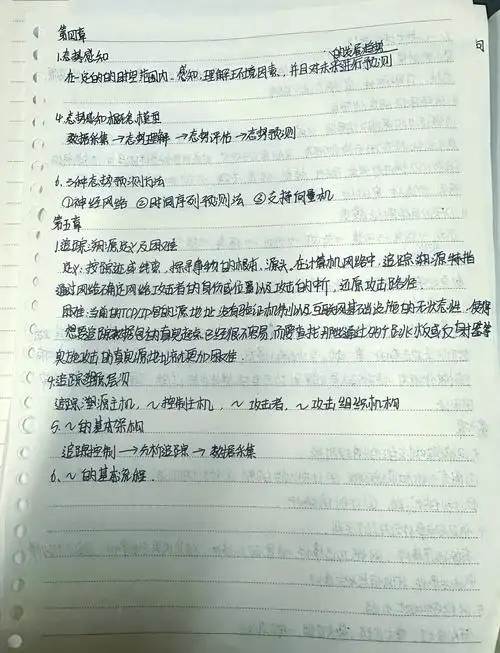 第四章
1.态势感知
的发展趋势
在一定的的时空范围内,感知,理解环境因素,并且对未来进行预测
4.态势感知概念模型
数据采集→态势理解→态势评估→态势预测
6.三种态势预测方法
①神经网络 ②时间序列预测法 ③支持向量机
第五章
1.追踪溯源定义及困难
定义:按踪迹或线索,探寻事物的根本、源头。在计算机网络中,追踪溯源特指
通过网络确定网络攻击者的身份或位置以及攻击的中间,还原攻击路径
困难:当前的TCP/IP包的源地址没有验证机制以及互联网基础设施的无状态性,使得
想追踪数据包的真实起点已经很不容易,而要查找那些通过多个跳板或反射器等
实施攻击的真实源地址就更加困难.
4.追踪溯源层次
追踪溯源主机,~控制主机,~攻击者,~攻击组织机构
5.~的基本架构
追踪控制→分析追踪→数据采集
6、~的基本流程.
句